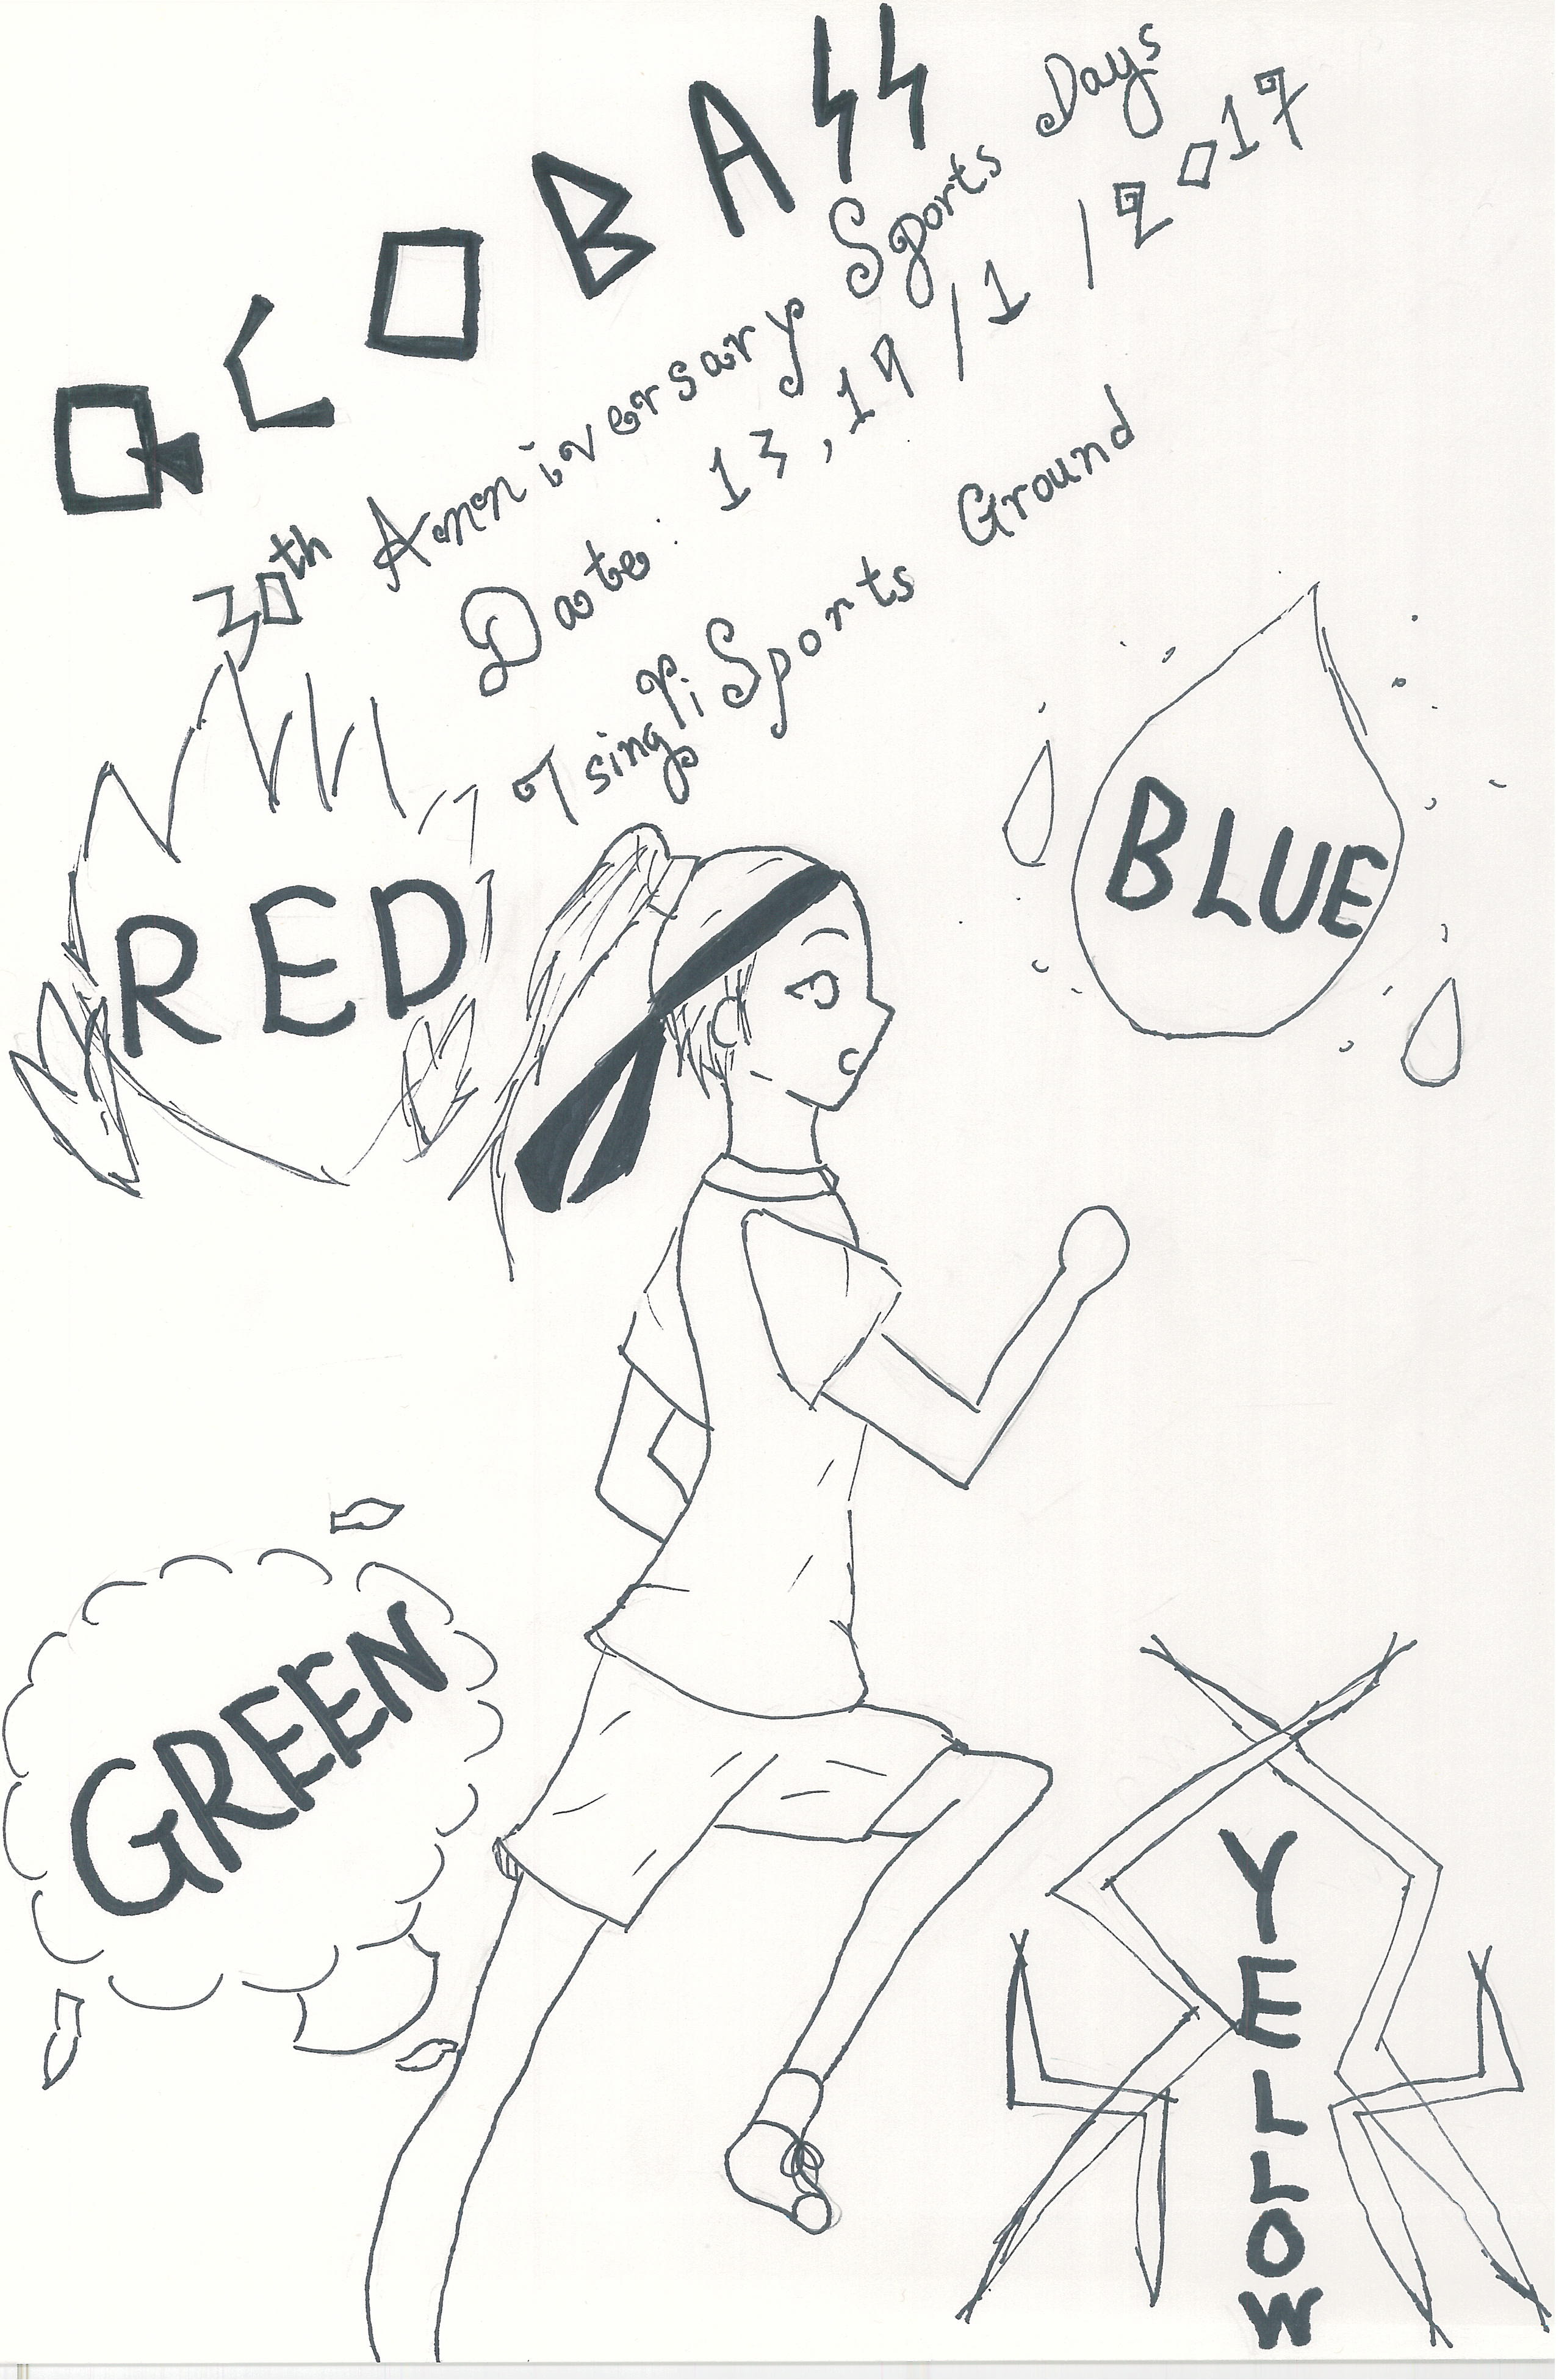 QCOBASS
30th Anniversary Sports Days
Date: 13,19/1/2017
Tsing Yi Sports Ground
RED
BLUE
GREEN
YELLOW